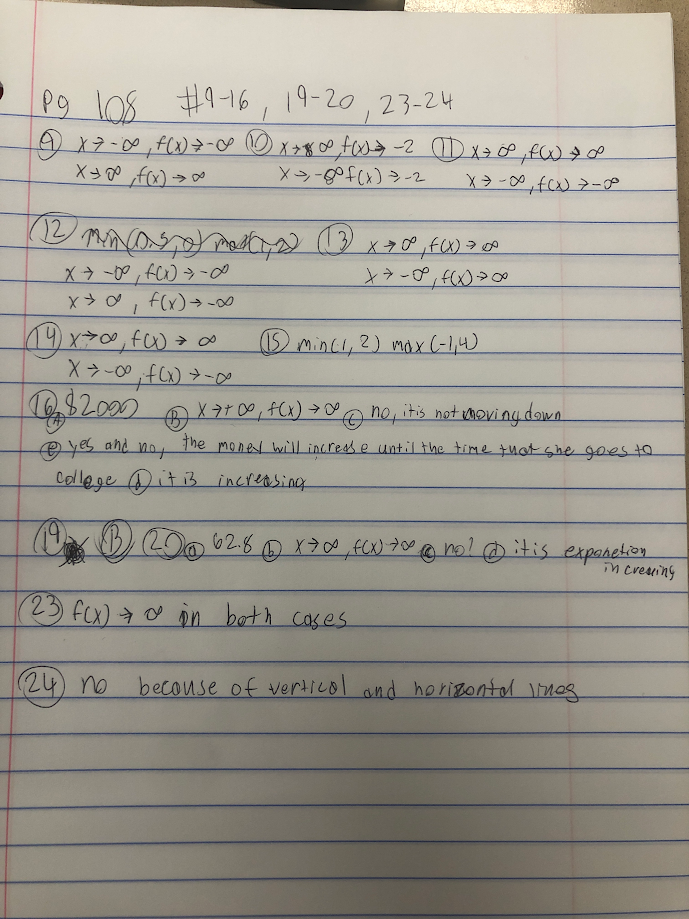 pg 108 #9-16, 19-20, 23-24
⑨ x→-∞, f(x)→-∞ ⑩ x→∞, f(x)→ -2 ⑪ x→∞, f(x)→∞
x→∞, f(x)→∞ x→-∞ f(x)→-2 x→-∞, f(x)→-∞
⑫ ⑬ x→∞, f(x)→∞
x→ -∞, f(x)→-∞ x→-∞, f(x)→∞
x→ ∞, f(x)→-∞
⑭ x→∞, f(x)→ ∞ ⑮ min(1, 2) max(-1,4)
x→-∞, f(x)→-∞
⑯ Ⓐ 82000 Ⓑ x→+∞, f(x)→∞ ⓒ no, it is not moving down
ⓔ yes and no, the money will increase until the time that she goes to
college ⓓ it is increasing
⑲ Ⓑ ⑳ ⓐ 62.8 ⓑ x→∞, f(x)→∞ ⓒ no? ⓓ it is exponetion
increasing
㉓ f(x)→ ∞ in both cases
㉔ no because of vertical and horizontal lines